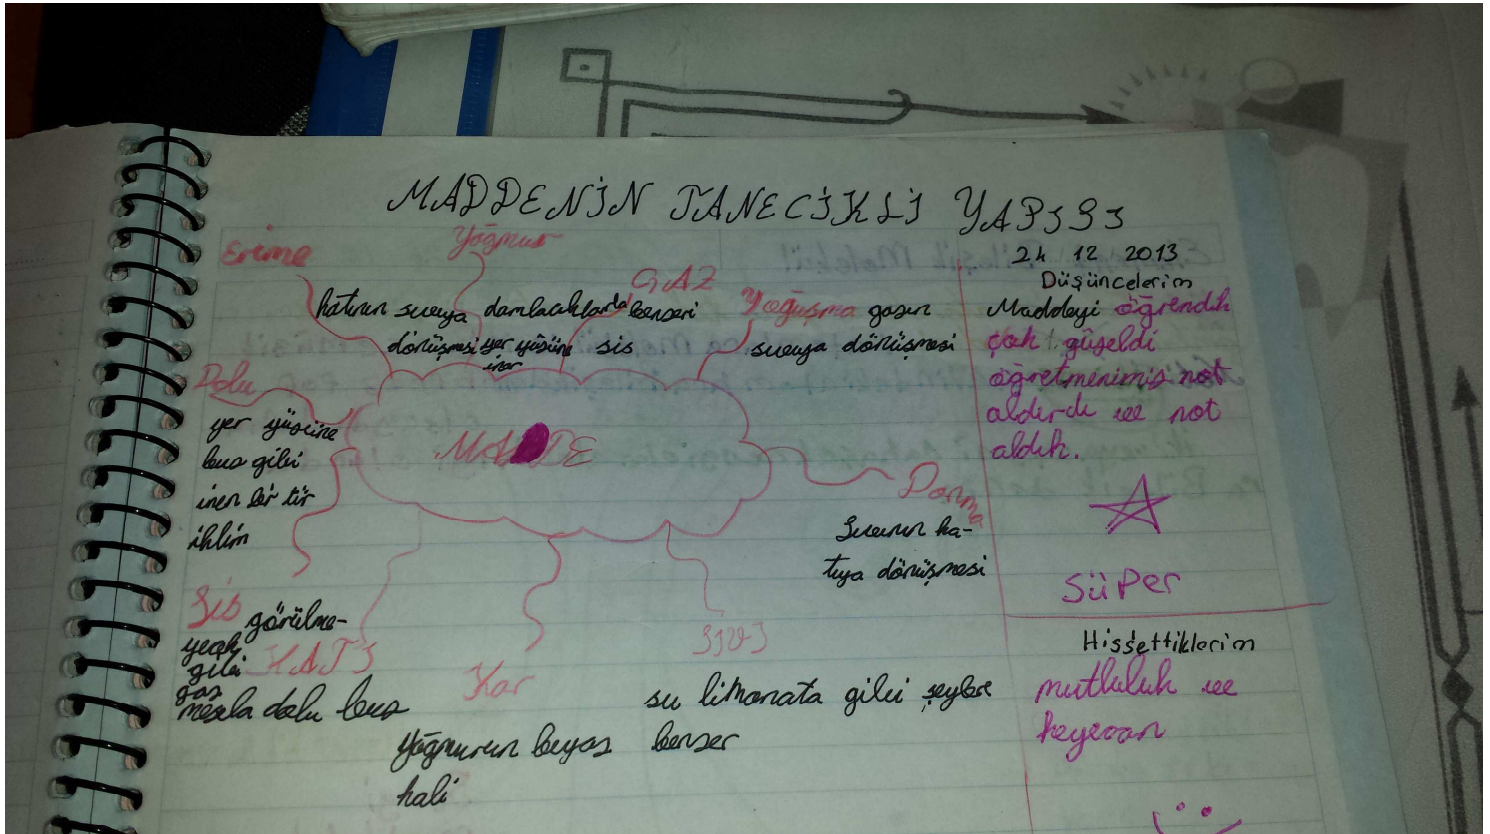 MADDENİN TANECİKLİ YAPISI
24 12 2013
Erime
katının suvya
dönüşmesi
Yağmur
damlacıklarla
yer yüzüne
iner
GAZ
benzeri
sis
Yoğuşma gazın
suvya dönüşmesi
Dolu
yer yüzüne
buz gibi
inen bir tür
iklim
MADDE
Donma
Suvun ka-
tıya dönüşmesi
Sis görülme-
yecek
gibi
gaz
KATI
mesela dolu buz
Kar
Yağmurun beyaz
hali
SIVI
su limonata gibi şeylere
benzer
Düşüncelerim
Maddeyi öğrendik
çok güzeldi
öğretmenimiz not
aldırdı ve not
aldık.
SÜPer
Hissettiklerim
mutluluk ve
heyecan